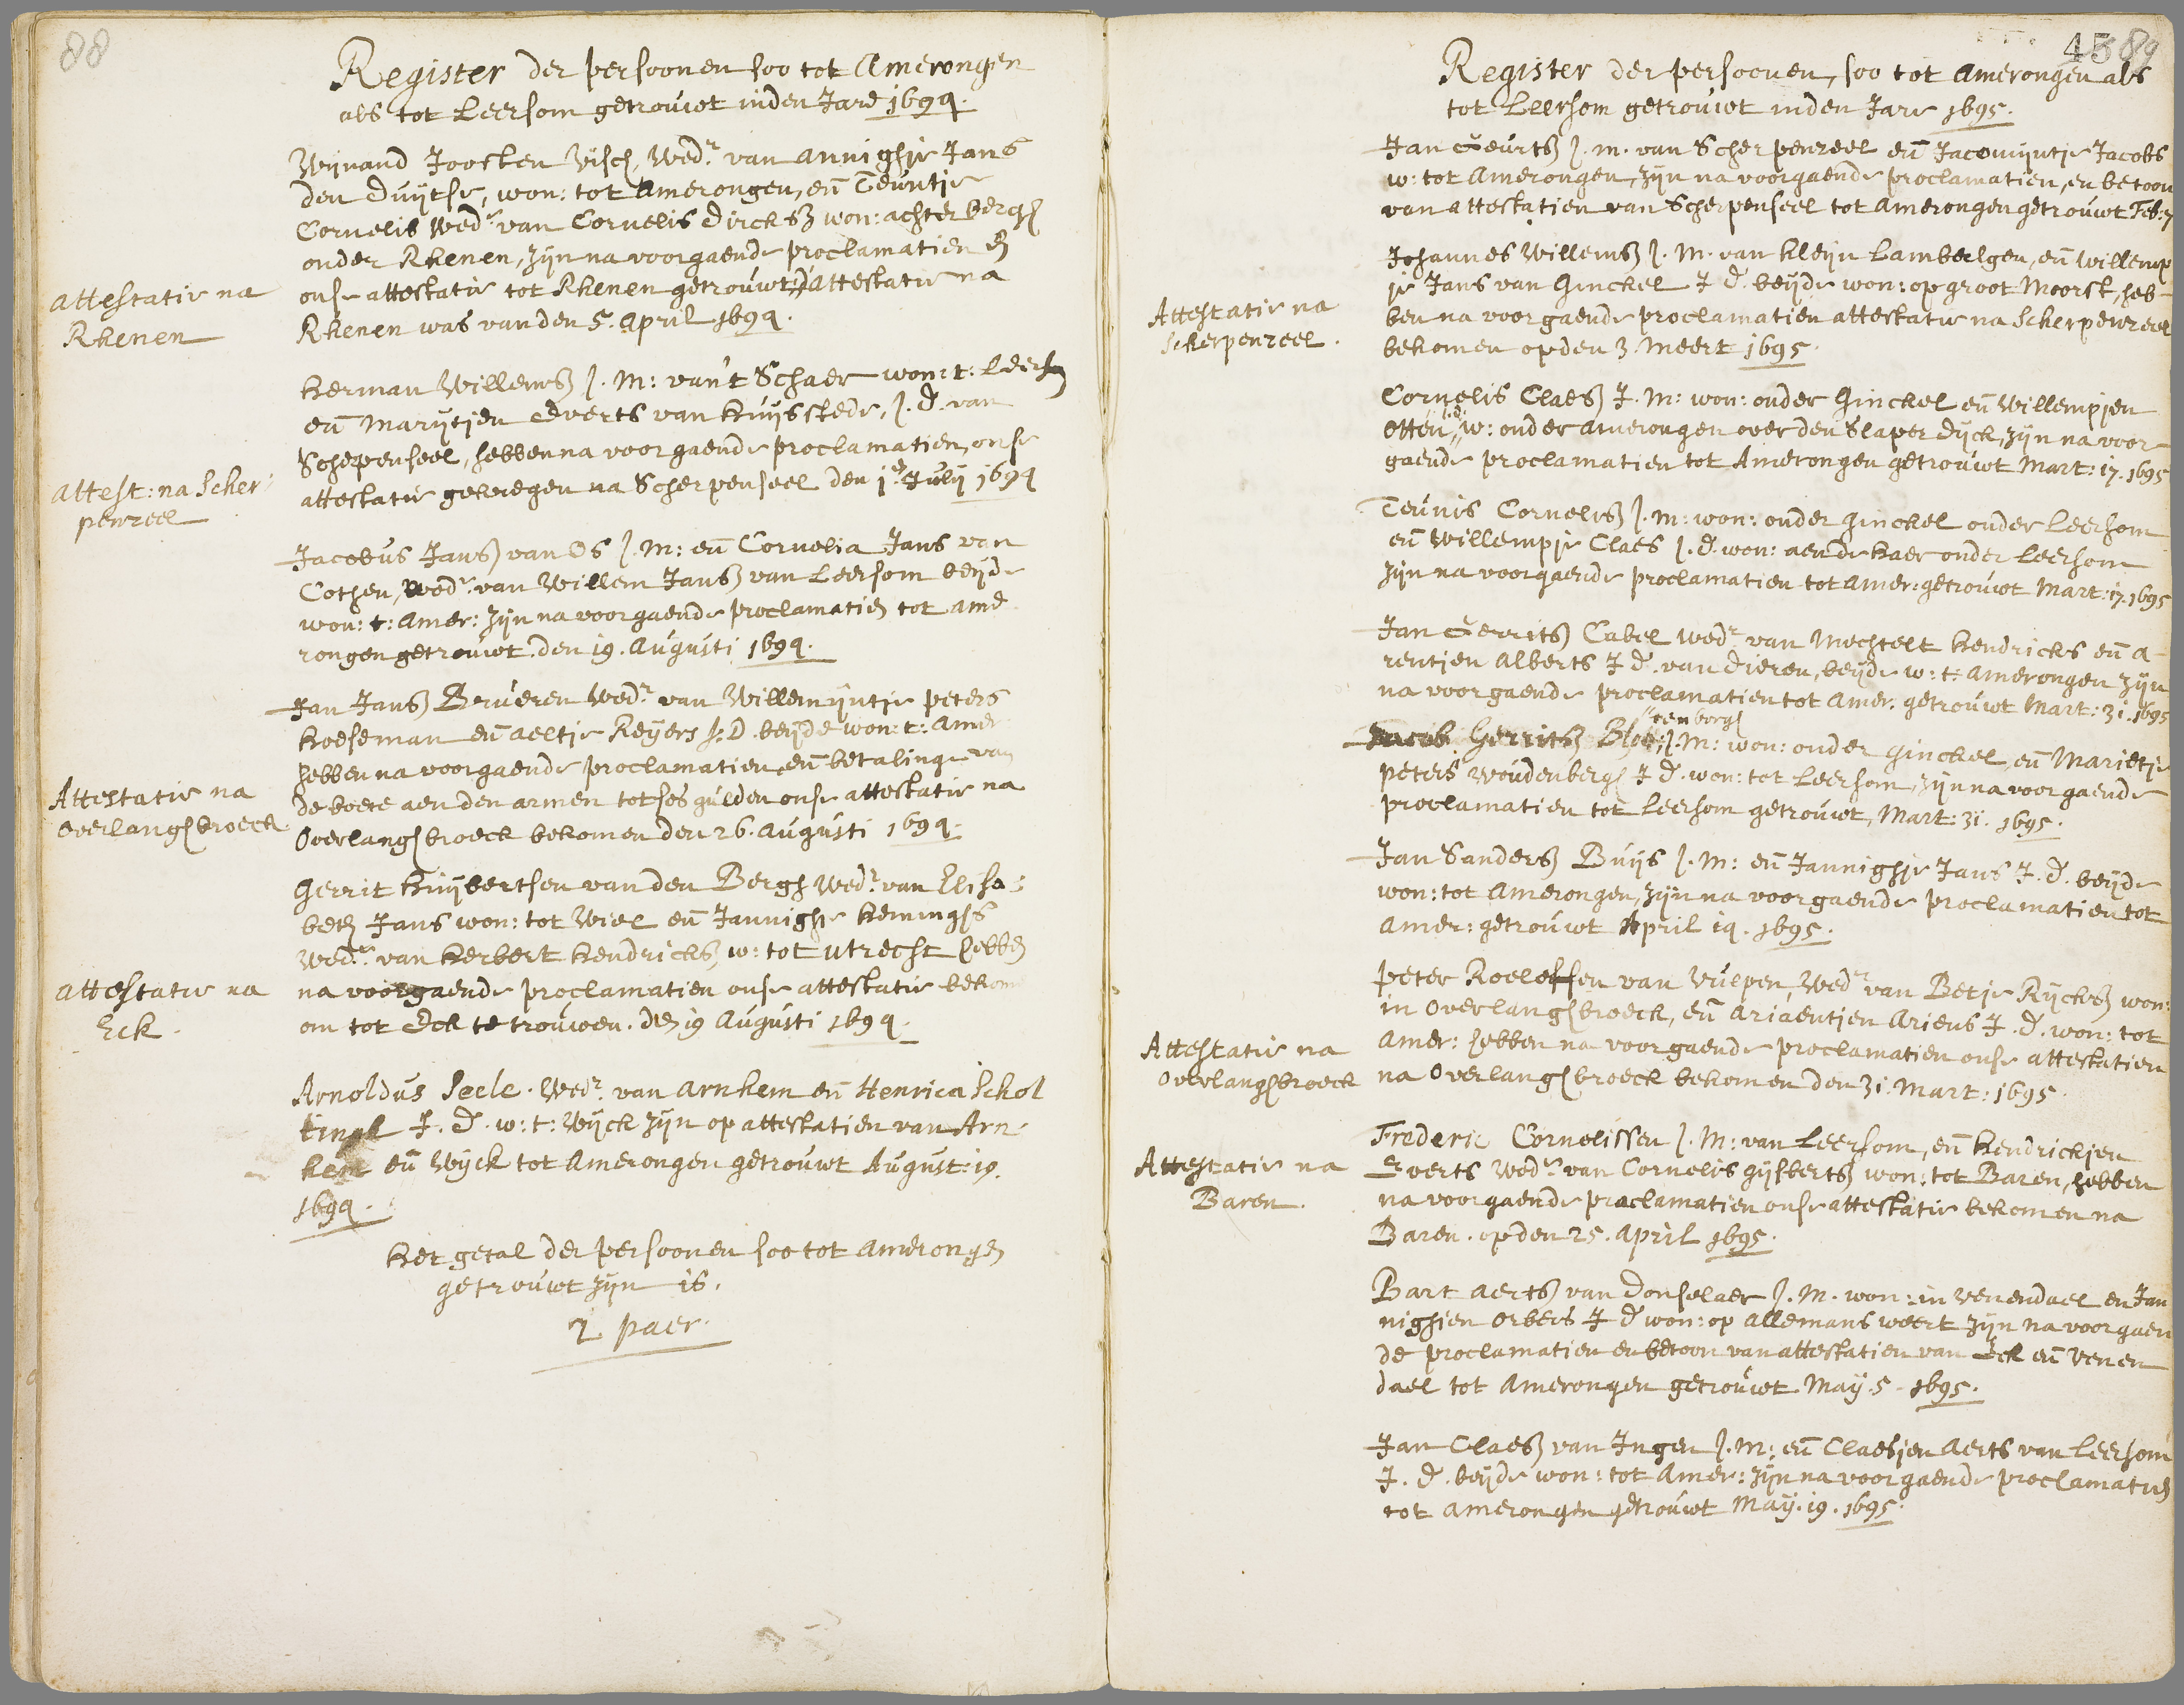 88
Register der persoonen soo tot Amerongen
als tot Leersom getrouwt inden Jare 1694.
Wijnand Joosten Visch, Wedr. van Annighje Jans
den Duijtse, won: tot Amerongen, eñ Teuntje
Cornelis Wedr. van Cornelis Dircksz won: achterbergh
onder Rhenen, zijn na voorgaende proclamatien en
attestatie na
onse attestatie tot Rhenen getrouwt, d'attestatie na
Rhenen
Rhenen was van den 5. April 1694.
Herman Willemsz J. M: van't Schaer won: t: Leersom
eñ Marijtjen Everts van Huijsstede, J. D. van
Scherpenseel, hebben na voorgaende proclamatien, onse
attest: na Scher
attestatie gekregen na Scherpenseel den 1e July 1694
penzeel
Jacobus Jansz van Os J. M: eñ Cornelia Jans van
Cothen, Wedr. van Willem Jansz van Leersom beijde
won: t: Amer: zijn na voorgaende proclamatien tot Ame
rongen getrouwt. den 19. Augusti 1694.
Jan Jansz Brueren Wedr. van Willemijntje Peters
Koeseman eñ Aeltje Reijers J: D. beijde won: t: Amer
hebben na voorgaende proclamatien, eñ betalinge van
Attestatie na
de boete aen den armen tot ses gulden onse attestatie na
Overlanghbroeck
Overlanghbroeck bekomen den 26. Augusti 1694.
Gerrit Huijbertsen van den Bergh Wedr. van Elisa
beth Jans won: tot Wiel eñ Jannighje Hennighs
Wedr. van Herbert Hendricksz, w: tot Utrecht hebben
attestatie na
na voorgaende proclamatien onse attestatie bekom
Eck.
om tot Eck te trouwen. den 19 Augusti 1694.
Arnoldus Seele. Wedr. van Arnhem eñ Henrica Schol
tingl J. D. w: t: Wijck zijn op attestatien van Arn
hem eñ Wijck tot Amerongen getrouwt August: 19.
1694.
Het getal der persoonen soo tot Amerongen
getrouwt zijn is.
2 paer.
45 89
Register der persoonen, soo tot Amerongen als
tot Leersom getrouwt inden Jare 1695.
Jan Geurtsz J. m. van Scherpenzeel eñ Jacomijntje Jacobs
w: tot Amerongen, zijn na voorgaende proclamatien, en betoon
van attestatien van Scherpenseel tot Amerongen getrouwt Feb: 7
Johannes Willemsz J. M. van kleijn Lambalgen, eñ Willemp
je Jans van Ginckel J D. beijde won: op groot Moorst, heb-
Attestatie na
ben na voorgaende proclamatien attestatie na Scherpenzeel
Scherpenzeel.
bekomen op den 3. Meert 1695.
Cornelis Claesz J. M: won: onder Ginckel eñ Willempjen
Otten J.d. w: onder Amerongen over den Slaperdijck, zijn na voor
gaende proclamatien tot Amerongen getrouwt Mart: 17. 1695
Teunis Cornelisz J. M: won: onder Ginckel onder Leersom
eñ Willempje Claes J. D. won: aen de Haer onder Leersom
zijn na voorgaende proclamatien tot Amer: getrouwt Mart: 17. 1695
Jan Gerritsz Cabel Wedr. van Mechtelt Hendricks eñ A-
rentjen Alberts J D. van Dieren, beijde w: t: Amerongen zijn
na voorgaende proclamatien tot Amer. getrouwt Mart: 31. 1695
Jacob Gerritsz Bloemborgh, J. M: won: onder Ginckel, eñ Marietje
Peters Woudenbergh J D. won: tot Leersom, zijn na voorgaende
proclamatien tot Leersom getrouwt, Mart: 31. 1695.
Jan Sandersz Buijs J. M: eñ Jannighje Jans J. D. beijde
won: tot Amerongen, zijn na voorgaende proclamatien tot
Amer: getrouwt April 14. 1695.
Peter Roeloffsen van Vulpen, Wedr. van Betje Rijcksz won:
in Overlanghbroeck, eñ Ariaentjen Ariens J. D. won: tot
Attestatie na
Amer: hebben na voorgaende proclamatien onse attestatien
Overlanghbroeck
na Overlanghbroeck bekomen den 31. Mart: 1695.
Frederic Cornelissen J. M: van Leersom, eñ Hendrickjen
Attestatie na
Everts Wedr. van Cornelis Gijsbertsz won: tot Baren, hebben
Baren.
na voorgaende proclamatien onse attestatie bekomen na
Baren. op den 25. April 1695.
Bart Aertsz van Donselaer J. M. won: in Venendael en Jan
nighjen Orbers J D won: op Allemans weert zijn na voorgaen
de proclamatien en betoon van attestatien van Eck eñ Venen
dael tot Amerongen getrouwt May. 5. 1695.
Jan Claesz van Ingen J. M: eñ Claesjen Aerts van Leersom
J. D. beijde won: tot Amer: zijn na voorgaende proclamatien
tot Amerongen getrouwt May. 19. 1695.